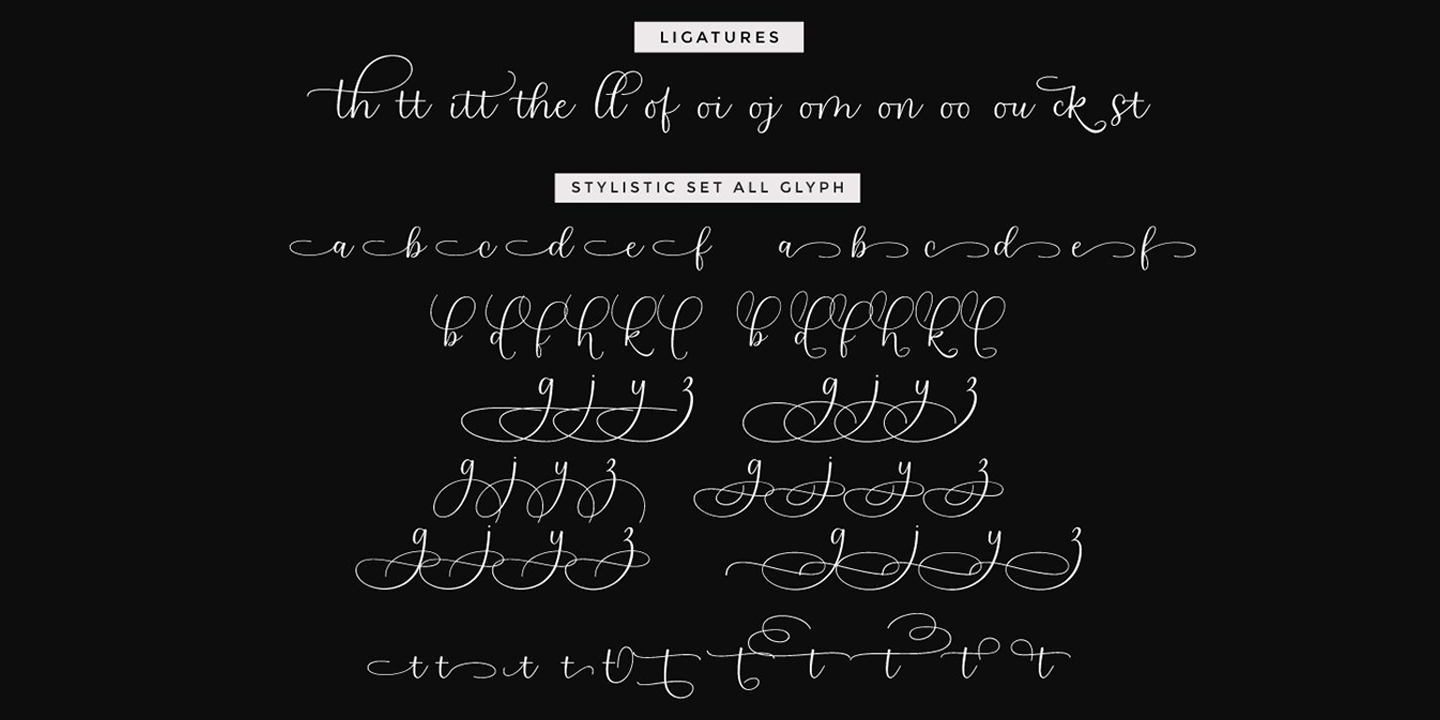 LIGATURES
th tt itt the ll of oi oj om on oo ou ck st
STYLISTIC SET ALL GLYPH
a b c d e f a b c d e f
b d f h k l b d f h k l
g j y z g j y z
g j y z g j y z
g j y z g j y z
t t t t t t t t t t t